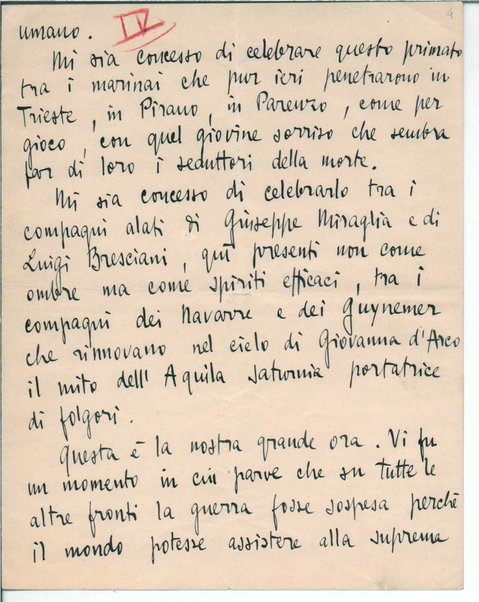 4
umano. IV
Mi sia concesso di celebrare questo primato
tra i marinai che pur ieri penetrarono in
Trieste, in Pirano, in Parenzo, come per
gioco, con quel giovine sorriso che sembra
far di loro i seduttori della morte.
Mi sia concesso di celebrarlo tra i
compagni alati di Giuseppe Miraglia e di
Luigi Bresciani, qui presenti non come
ombre ma come spiriti efficaci, tra i
compagni dei Navarre e dei Guynemer
che rinnovano nel cielo di Giovanna d'Arco
il mito dell'Aquila saturnia portatrice
di folgori.
Questa è la nostra grande ora. Vi fu
un momento in cui parve che su tutte le
altre fronti la guerra fosse sospesa perché
il mondo potesse assistere alla suprema